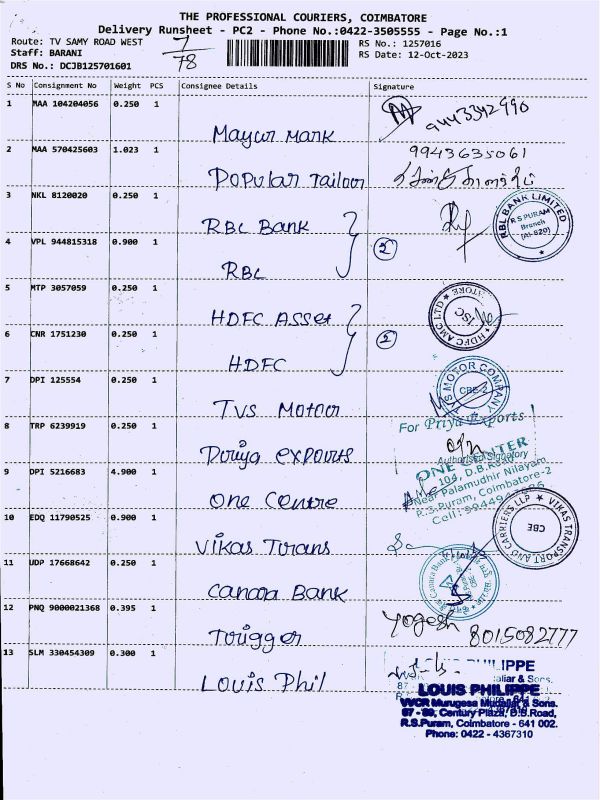 THE PROFESSIONAL COURIERS, COIMBATORE
Delivery Runsheet - PC2 - Phone No.:0422-3505555 - Page No.:1
Route: TV SAMY ROAD WEST 7/78 RS No.: 1257016
Staff: BARANI RS Date: 12-Oct-2023
DRS No.: DCJB125701601
S No Consignment No Weight PCS Consignee Details Signature
1 MAA 104204056 0.250 1 Mayur Mark 9443342990
2 MAA 570425603 1.023 1 Popular Tailoor 9943635061
3 NKL 8120020 0.250 1 RBL Bank
RBL BANK LIMITED
R S PURAM
Branch
(AI-829)
4 VPL 944815318 0.900 1 RBL 2
5 MTP 3057059 0.250 1 HDFC Asset
HDFC AMC LTD
ISC
STORE
6 CNR 1751230 0.250 1 HDFC 2
7 DPI 125554 0.250 1 TVS Motoor
MOTOR COMPANY
CBE-2
8 TRP 6239919 0.250 1 Poriya exports
For Priya Exports
Authorised Signatory
9 DPI 5216683 4.900 1 One Centre
ONE CENTER
104, D.B.Road
Near Palamudhir Nilayam
R.S.Puram, Coimbatore-2
Cell:
10 EDQ 11790525 0.900 1 Vikas Trans
VIKAS TRANSPORT AND CARRIERS LLP
CBE
11 UDP 17668642 0.250 1 Canara Bank
Canara Bank
12 PNQ 9000021368 0.395 1 Trigger Yogesh 8015082777
13 SLM 330454309 0.300 1 Louis Phil
LOUIS PHILIPPE
VVCR Murugesa Mudaliar & Sons.
87 - 89, Century Plaza, D.B.Road,
R.S.Puram, Coimbatore - 641 002.
Phone: 0422 - 4367310